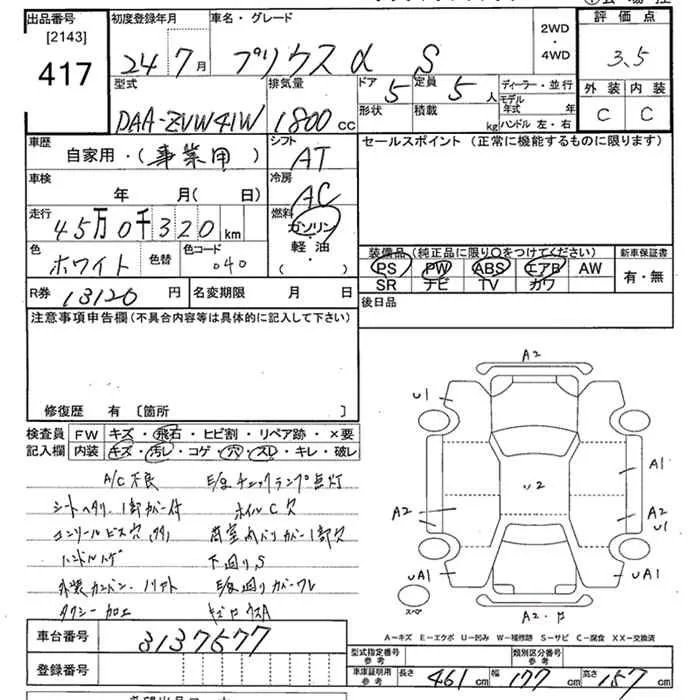 出品番号 [2143] 417
初度登録年月 24年7月
車名・グレード プリウスα S
2WD・4WD
評価点 3.5
型式 DAA-ZVW41W
排気量 1800cc
ドア 5
形状
定員 5人
積載 kg
ディーラー・並行
モデル年式 年
ハンドル 左・右
外装 C
内装 C
車歴 自家用・(事業用)
シフト AT
セールスポイント (正常に機能するものに限ります)
車検 年 月(日)
冷房 AC
走行 45万0千320km
燃料 ガソリン 軽・油 (・)
色 ホワイト
色替
色コード 040
装備品 (純正品に限り○をつけてください)
PS PW ABS エアB AW
SR ナビ TV カワ
新車保証書 有・無
R券 13120円
名変期限 月 日
後日品
注意事項申告欄 (不具合内容等は具体的に記入して下さい)
修復歴 有 〔箇所 〕
検査員記入欄
FW キズ・飛石・ヒビ割・リペア跡・×要
内装 キズ・汚レ・コゲ・穴・スレ・キレ・破レ
A/C不良 E/gチェックランプ点灯
ホイルC 穴
コンソールビス穴
ハンドルハゲ 下回りS
タクシー加工
A2
U1
A1
U2
A2
A2 U1
UA1
UA1
スペア
A2・
A-キズ E-エクボ U-凹み W-補修跡 S-サビ C-腐食 XX-交換済
車台番号 3137577
登録番号
型式指定番号 参考
類別区分番号 参考
車庫証明用 参考 長さ 461cm 幅 177cm 高さ 157cm